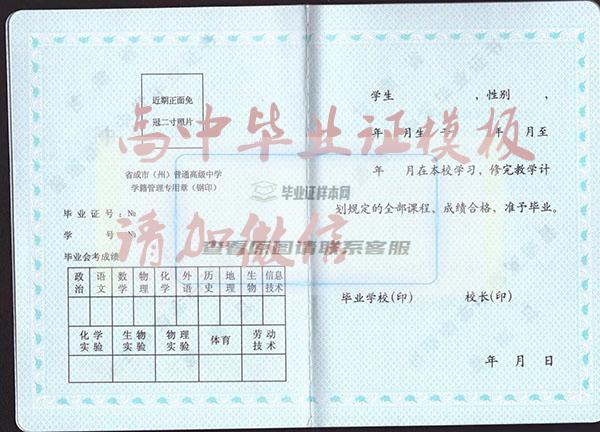 近期正面免
冠二寸照片
省成市（州）普通高级中学
学籍管理专用章（钢印）
毕业证号：№
学 号 №
毕业会考成绩
政治 语文 数学 物理 化学 外语 历史 地理 生物 信息技术
化学实验 生物实验 物理实验 体育 劳动技术
学生 ，性别 ，
年 月生 于 年 月至
年 月在本校学习，修完教学计
划规定的全部课程、成绩合格，准予毕业。
毕业学校(印) 校长(印)
年 月 日
高中毕业证模板
请加微信
毕业证样本网
查看原图请联系客服